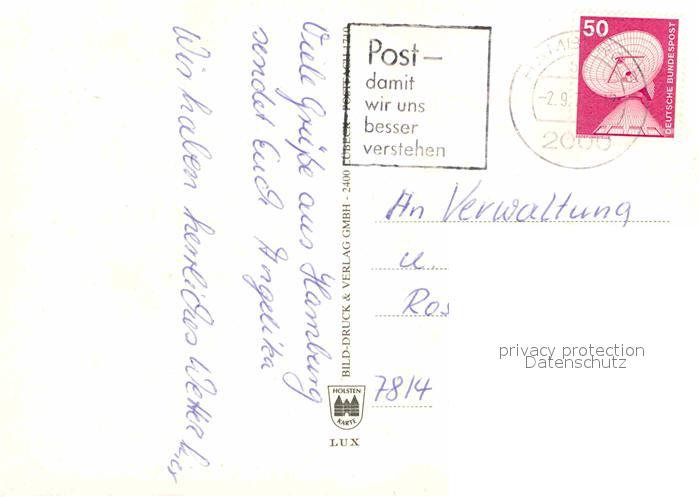 Viele Grüße aus Hamburg
sendet Euch Angelika
Wir haben herrliches Wetter hier
BILD-DRUCK & VERLAG GMBH - 2400 LÜBECK - POSTFACH 1710
HOLSTEN
KARTE
LUX
Post—
damit
wir uns
besser
verstehen
-2.9.
2000
50
DEUTSCHE BUNDESPOST
An Verwaltung
u.
Ros
7814
privacy protection
Datenschutz